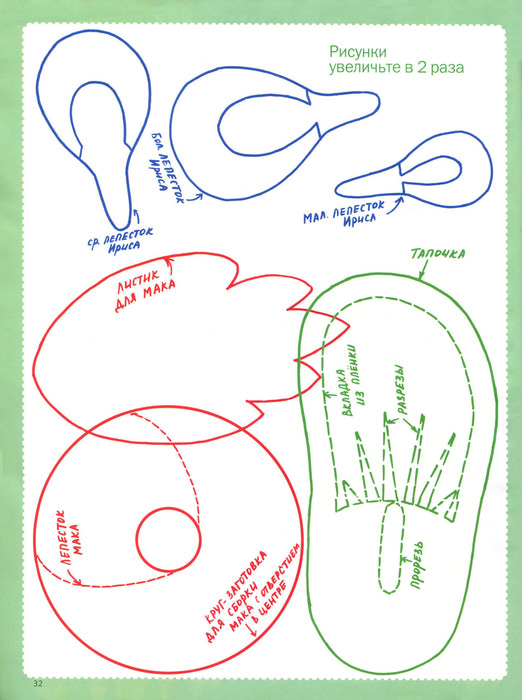 Рисунки
увеличьте в 2 раза
ср. лепесток
Ириса
Бол. лепесток
Ириса
мал. лепесток
Ириса
листик
для мака
тапочка
вкладка
из плёнки
разрезы
прорезь
лепесток
мака
круг-заготовка
для сборки
мака с отверстием
в центре
32